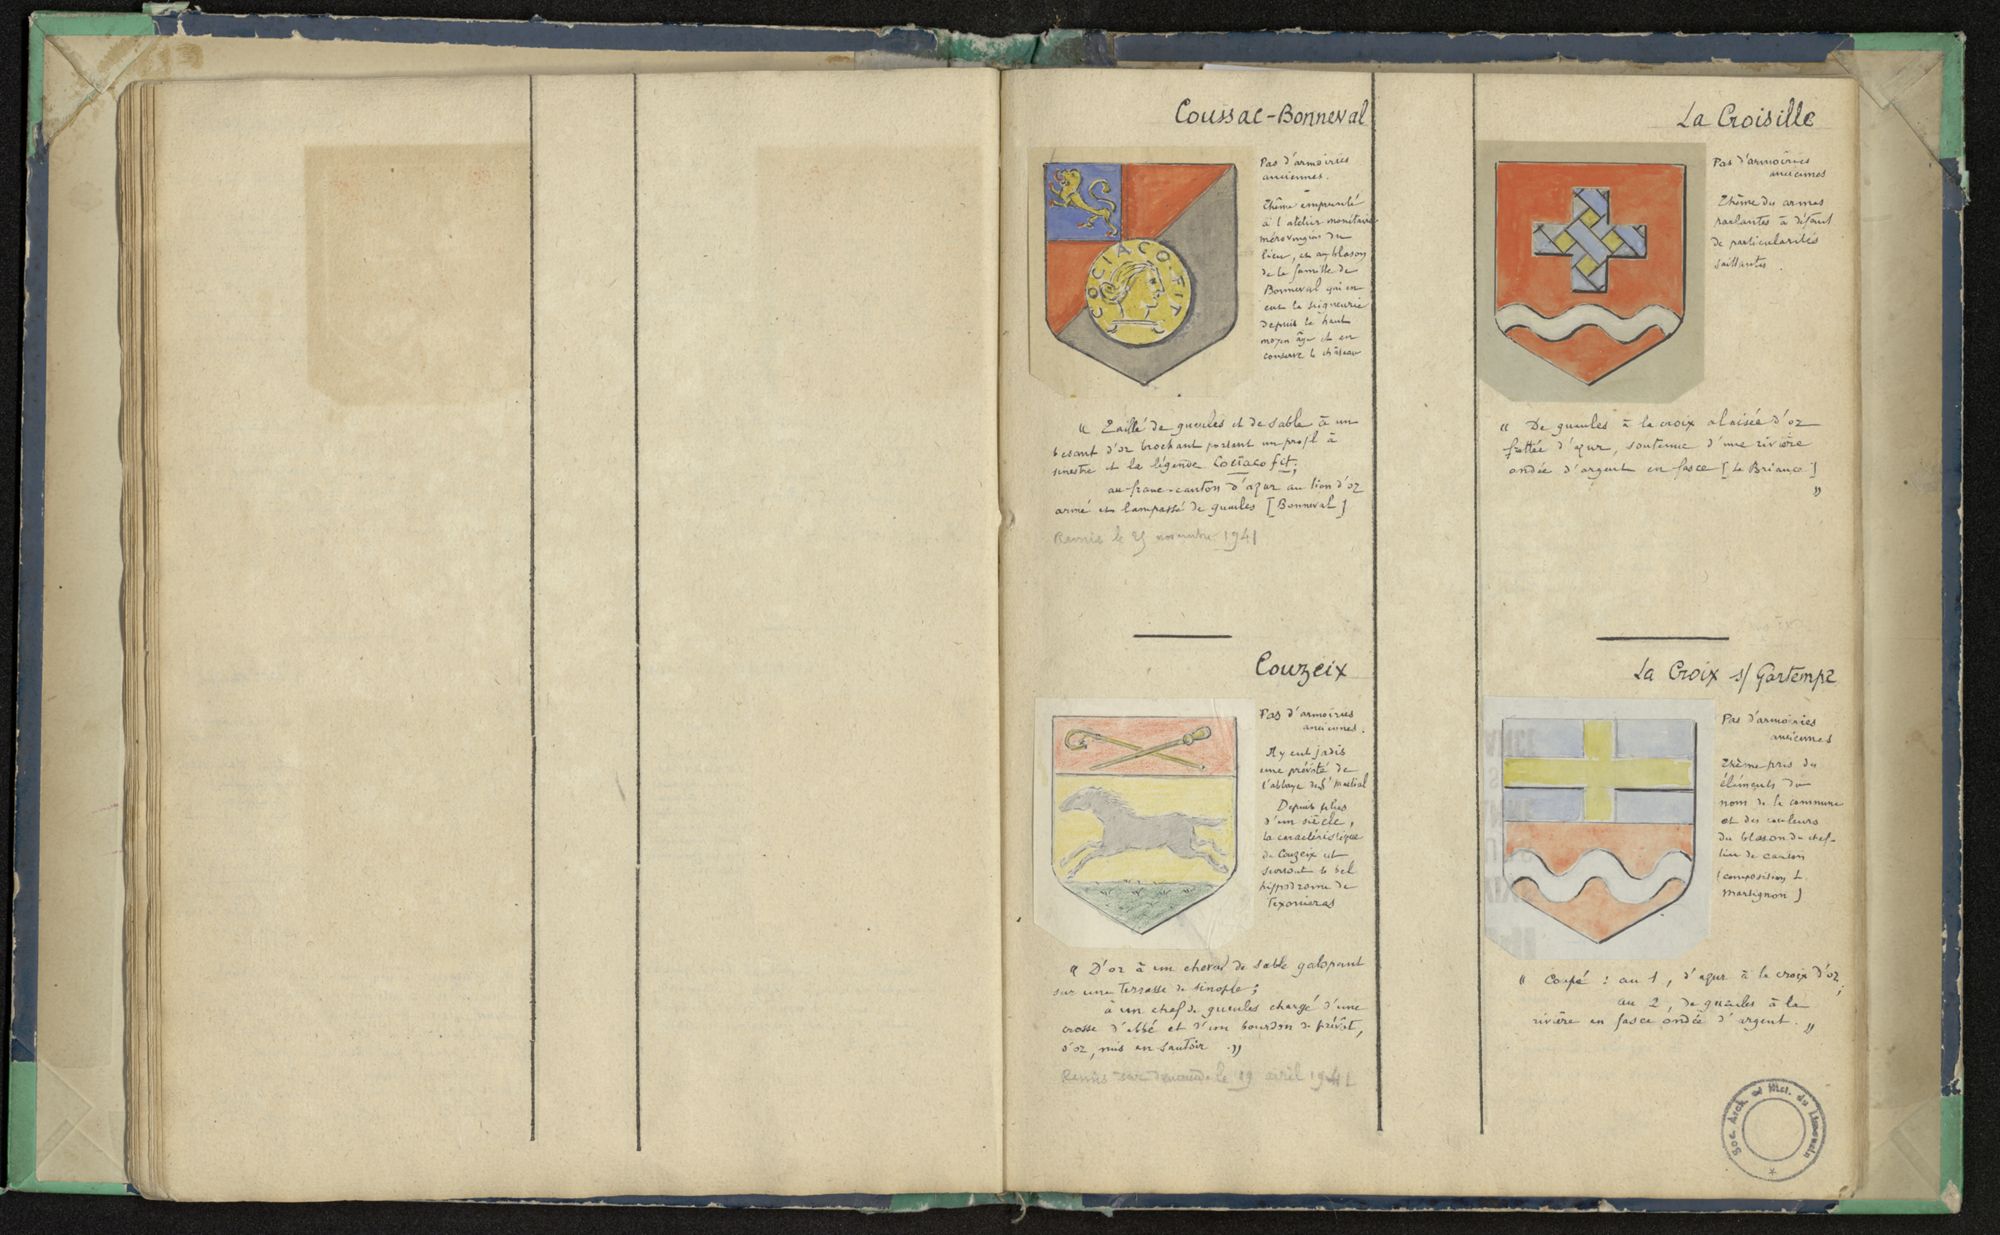 Coussac-Bonneval
COCIACO FIT
Pas d'armoiries
anciennes.
Thème emprunté
à l'atelier monétaire
mérovingien du
lieu, et au blason
de la famille de
Bonneval qui en
eut la seigneurie
depuis le haut
moyen âge et en
conserve le château
" Taillé de gueules et de sable à un
besant d'or brochant portant un profil à
senestre et la légende Cociaco fit;
au franc-canton d'azur au lion d'or
armé et lampassé de gueules [Bonneval]
Remis le 25 novembre 1941
Couzeix
Pas d'armoiries
anciennes.
Il y eut jadis
une prévôté de
l'abbaye de St Martial
Depuis plus
d'un siècle,
la caractéristique
de Couzeix est
surtout le bel
hippodrome de
Texonieras
" D'or à un cheval de sable galopant
sur une terrasse de sinople;
à un chef de gueules chargé d'une
crosse d'abbé et d'un bourdon de prévôt,
d'or, mis en sautoir ."
Remis sur demande le 19 avril 1941
La Croisille
Pas d'armoiries
anciennes
Thème des armes
parlantes à défaut
de particularités
saillantes.
" De gueules à la croix alaisée d'or
frettée d'azur, soutenue d'une rivière
ondée d'argent en fasce [La Briance]
"
La Croix s/ Gartempe
Pas d'armoiries
anciennes
Thème pris des
éléments du
nom de la commune
et des couleurs
du blason du chef-
lieu de canton
(composition L.
Marsignon)
" Coupé : au 1, d'azur à la croix d'or;
au 2, de gueules à la
rivière en fasce ondée d'argent. "
Soc. Arch. et Hist. du Limousin